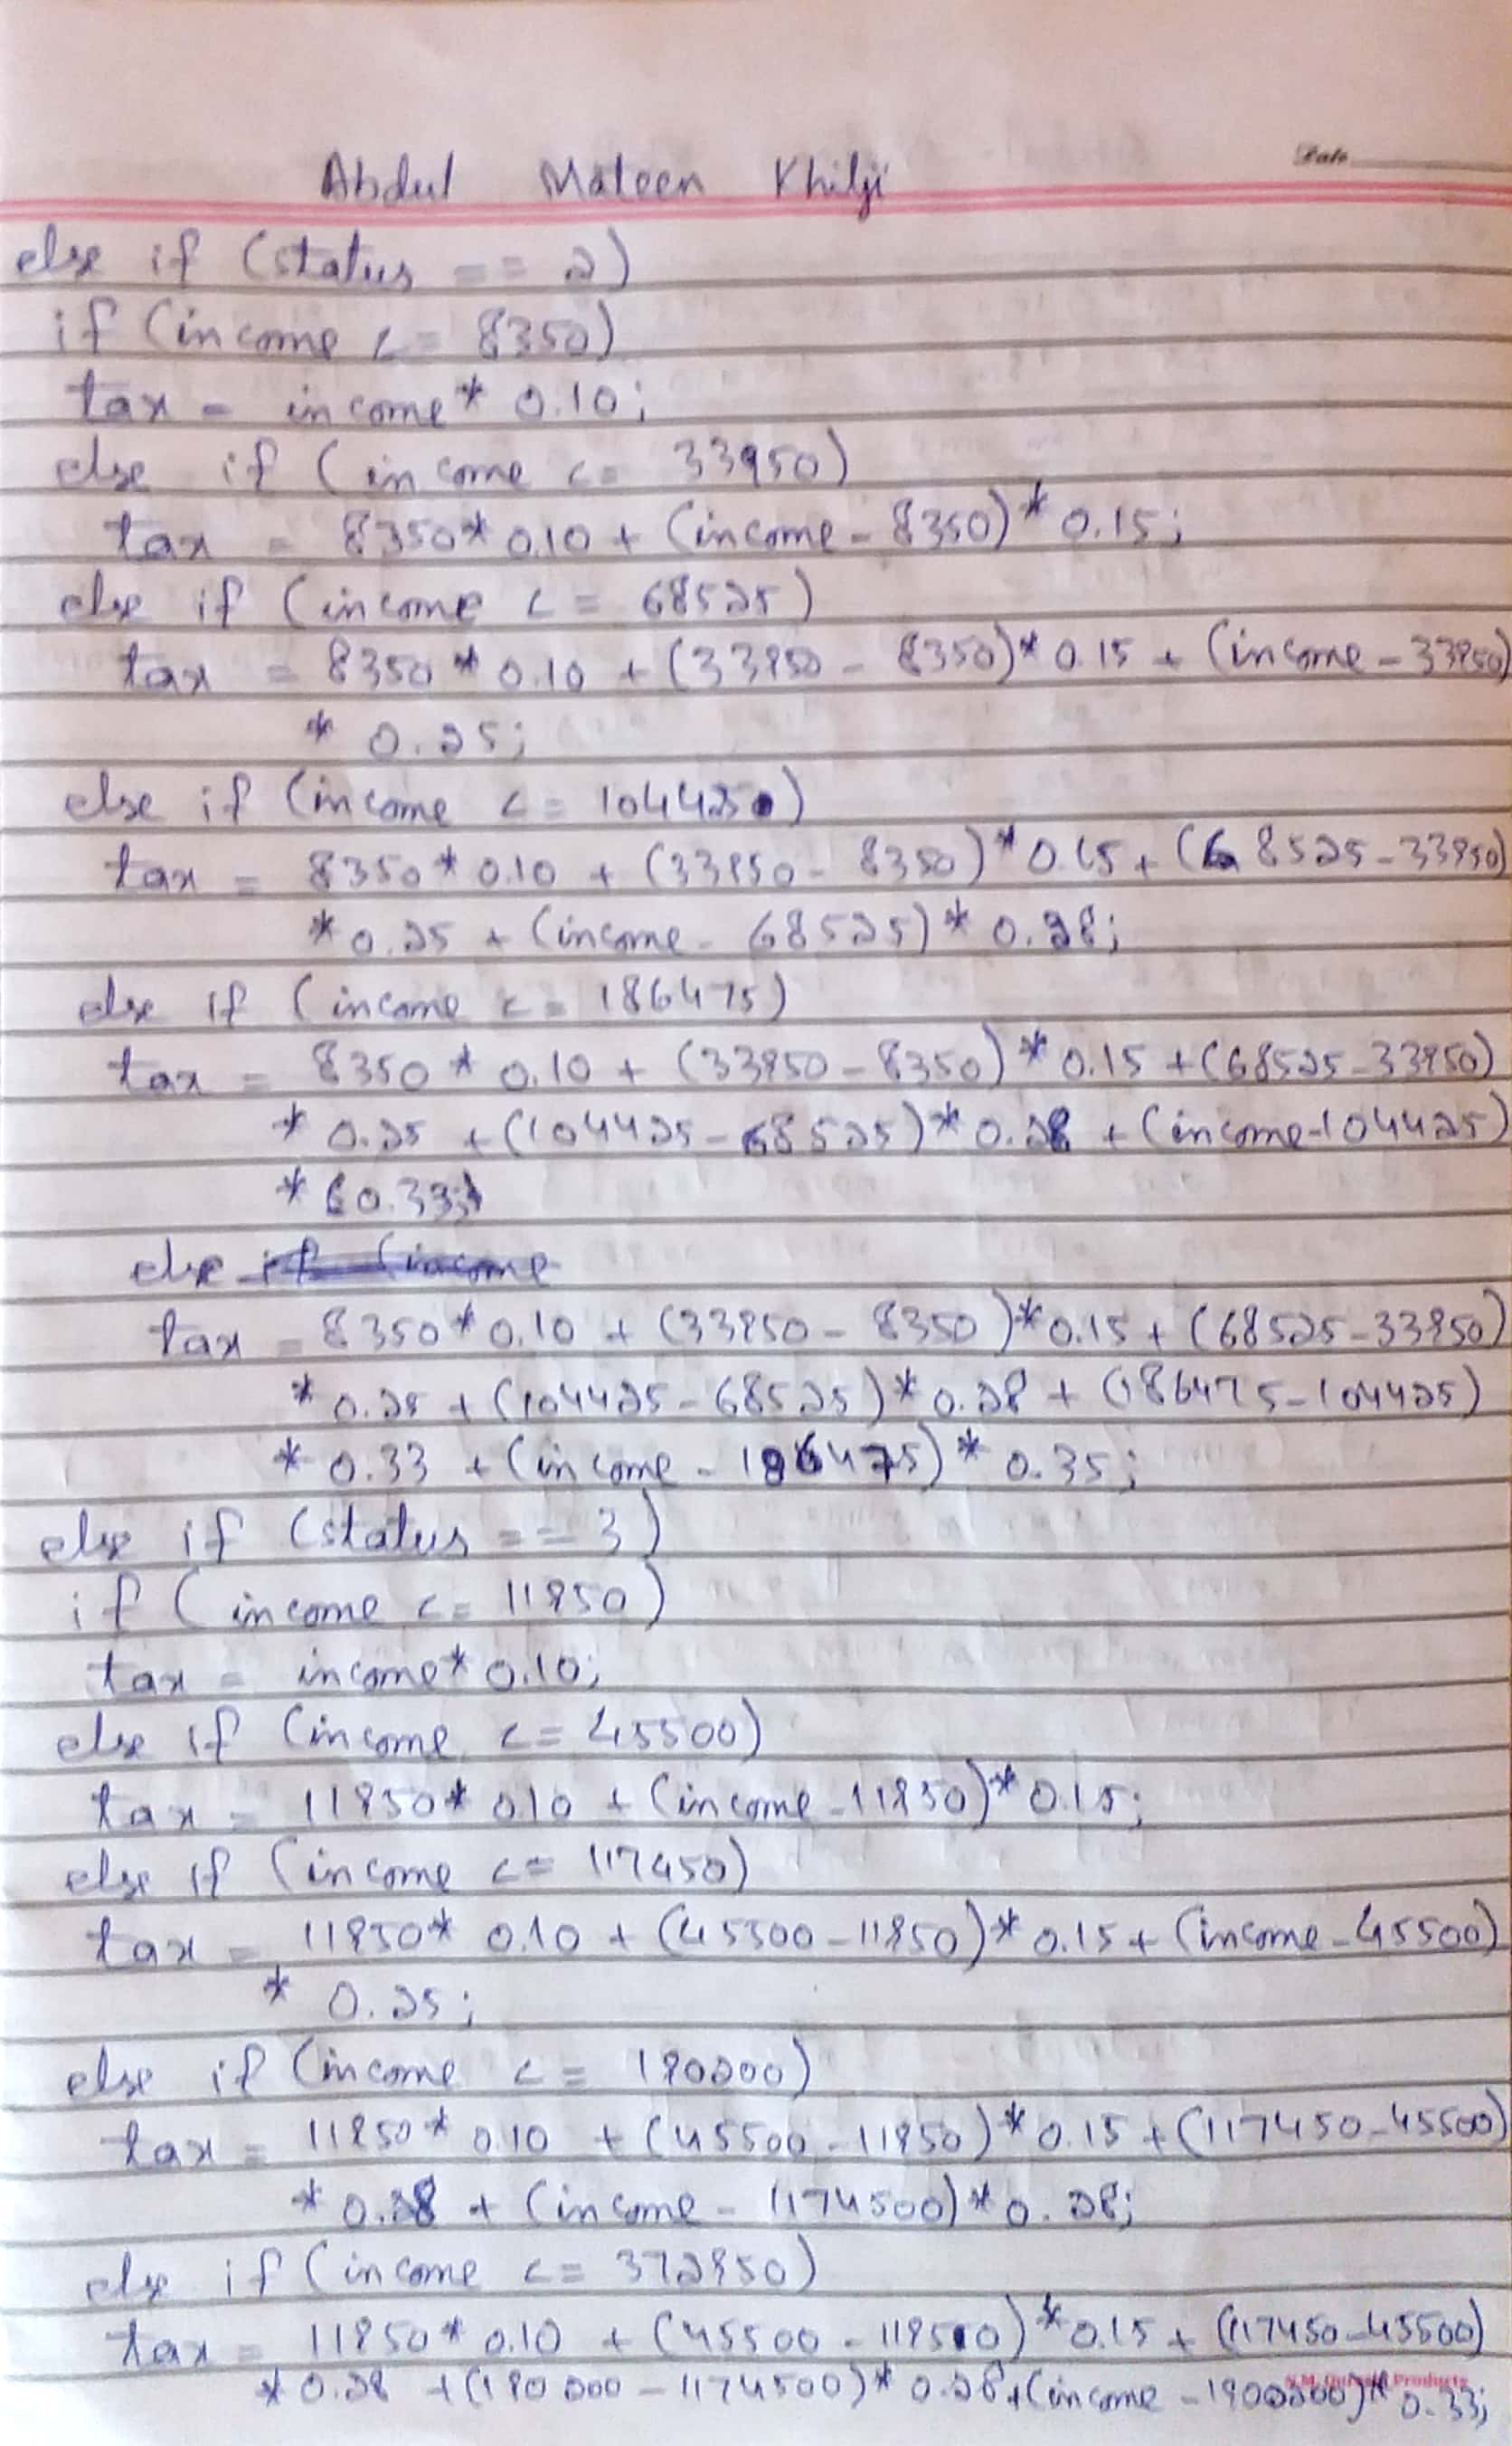 Abdul Mateen Khilji
Date
else if (status == 2)
if (income <= 8350)
tax = income * 0.10;
else if (income <= 33950)
tax = 8350 * 0.10 + (income - 8350) * 0.15;
else if (income <= 68525)
tax = 8350 * 0.10 + (33950 - 8350) * 0.15 + (income - 33950)
* 0.25;
else if (income <= 104425)
tax = 8350 * 0.10 + (33950 - 8350) * 0.15 + (68525 - 33950)
* 0.25 + (income - 68525) * 0.28;
else if (income <= 186475)
tax = 8350 * 0.10 + (33950 - 8350) * 0.15 + (68525 - 33950)
* 0.25 + (104425 - 68525) * 0.28 + (income - 104425)
* 0.33;
else if (income
tax = 8350 * 0.10 + (33950 - 8350) * 0.15 + (68525 - 33950)
* 0.25 + (104425 - 68525) * 0.28 + (186475 - 104425)
* 0.33 + (income - 186475) * 0.35;
else if (status == 3)
if (income <= 11950)
tax = income * 0.10;
else if (income <= 45500)
tax = 11950 * 0.10 + (income - 11950) * 0.15;
else if (income <= 117450)
tax = 11950 * 0.10 + (45500 - 11950) * 0.15 + (income - 45500)
* 0.25;
else if (income <= 190200)
tax = 11950 * 0.10 + (45500 - 11950) * 0.15 + (117450 - 45500)
* 0.28 + (income - 1174500) * 0.28;
else if (income <= 372950)
tax = 11950 * 0.10 + (45500 - 119500) * 0.15 + (117450 - 45500)
* 0.28 + (190200 - 1174500) * 0.28 + (income - 1902200) * 0.33;
Products